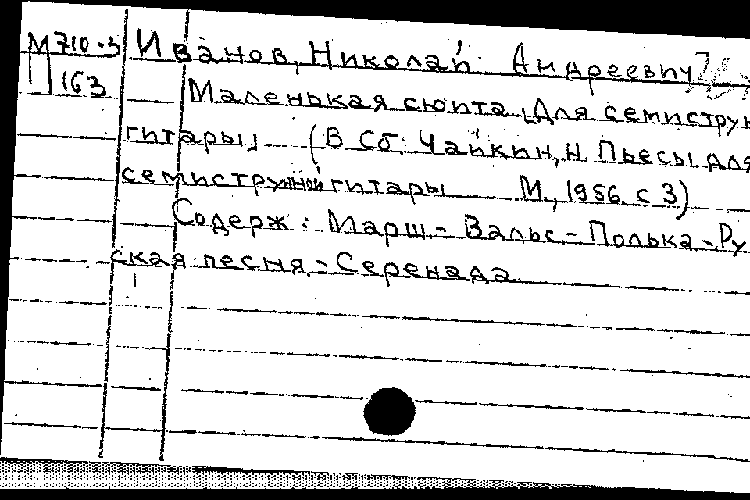 М710.3 Иванов, Николай Андреевич
П163 Маленькая сюита [Для семистру
гитары] (В сб: Чайкин, Н. Пьесы для
семиструнной гитары М., 1956. с 3)
Содерж: Марш - Вальс - Полька - Ру
ская песня - Серенада